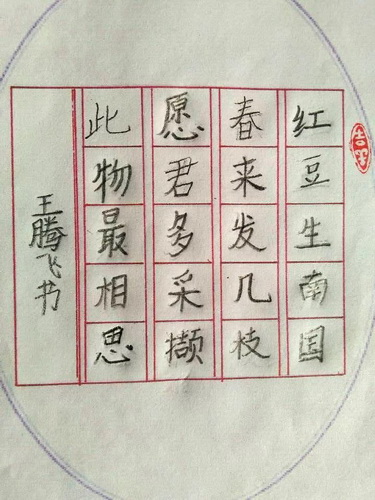 红豆生南国
春来发几枝
愿君多采撷
此物最相思
王腾飞书